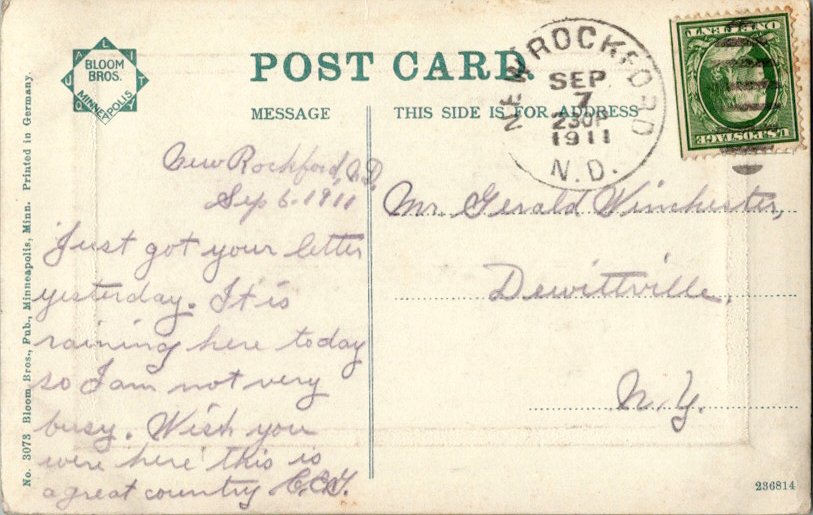 QUALITY
BLOOM
BROS.
MINNEAPOLIS
POST CARD.
MESSAGE
THIS SIDE IS FOR ADDRESS
NEW ROCKFORD
SEP
7
230P
1911
N.D.
ONE CENT
U.S. POSTAGE
New Rockford, N.D.
Sep 6. 1911
Just got your letter
yesterday. It is
raining here today
so I am not very
busy. Wish you
were here this is
a great country
Mr. Gerald Winchester,
Dewittville,
N.Y.
No. 3073 Bloom Bros., Pub., Minneapolis, Minn. Printed in Germany.
236814